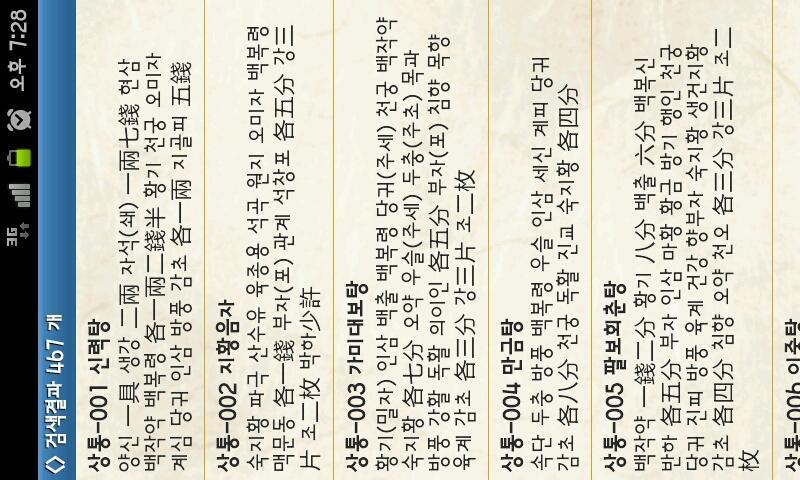 3G 오후 7:28
검색결과 467 개
상통-001 신력탕
양신 一具 생강 二兩 자석(쇄) 一兩七錢 현삼
백작약 백복령 各一兩二錢半 황기 천궁 오미자
계심 당귀 인삼 방풍 감초 各一兩 지골피 五錢
상통-002 지황음자
숙지황 파극 산수유 육종용 석곡 원지 오미자 백복령
맥문동 各一錢 부자(포) 관계 석창포 各五分 강三
片 조二枚 박하少許
상통-003 가미대보탕
황기(밀자) 인삼 백출 백복령 당귀(주세) 천궁 백작약
숙지황 各七分 오약 우슬(주세) 두충(주초) 목과
방풍 강활 독활 의이인 各五分 부자(포) 침향 목향
육계 감초 各三分 강三片 조二枚
상통-004 만금탕
속단 두충 방풍 백복령 우슬 인삼 세신 계피 당귀
감초 各八分 천궁 독활 진교 숙지황 各四分
상통-005 팔보회춘탕
백작약 一錢二分 황기 八分 백출 六分 백복신
반하 各五分 부자 인삼 마황 황금 방기 행인 천궁
당귀 진피 방풍 육계 건강 향부자 숙지황 생건지황
감초 各四分 침향 오약 천오 各三分 강三片 조二
枚
상통-006 이중탕